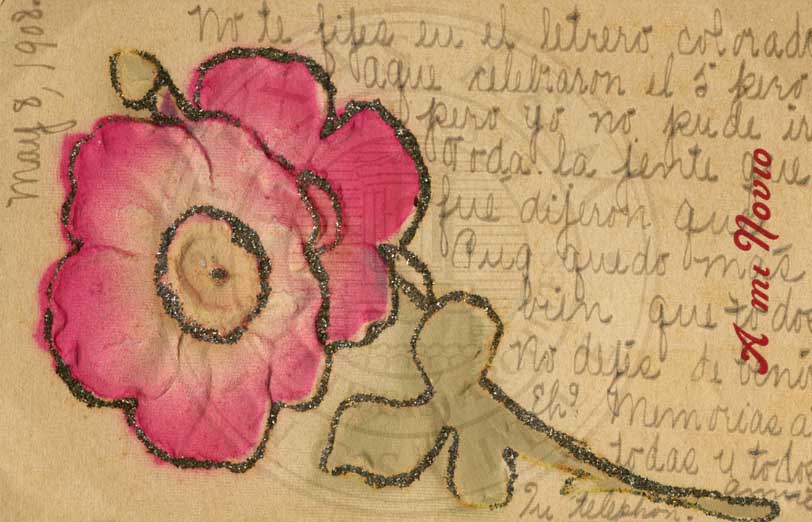 May 8, 1908.
No te fijes en el letrero colorado
aque celebraron el 5 pero
pero yo no pude i
toda la jente que
fué dijeron qu
quedo más
bien que todo
No dejes de veni
Eh? Memorias a
todas y todo
Tu telephon
A mi Novio